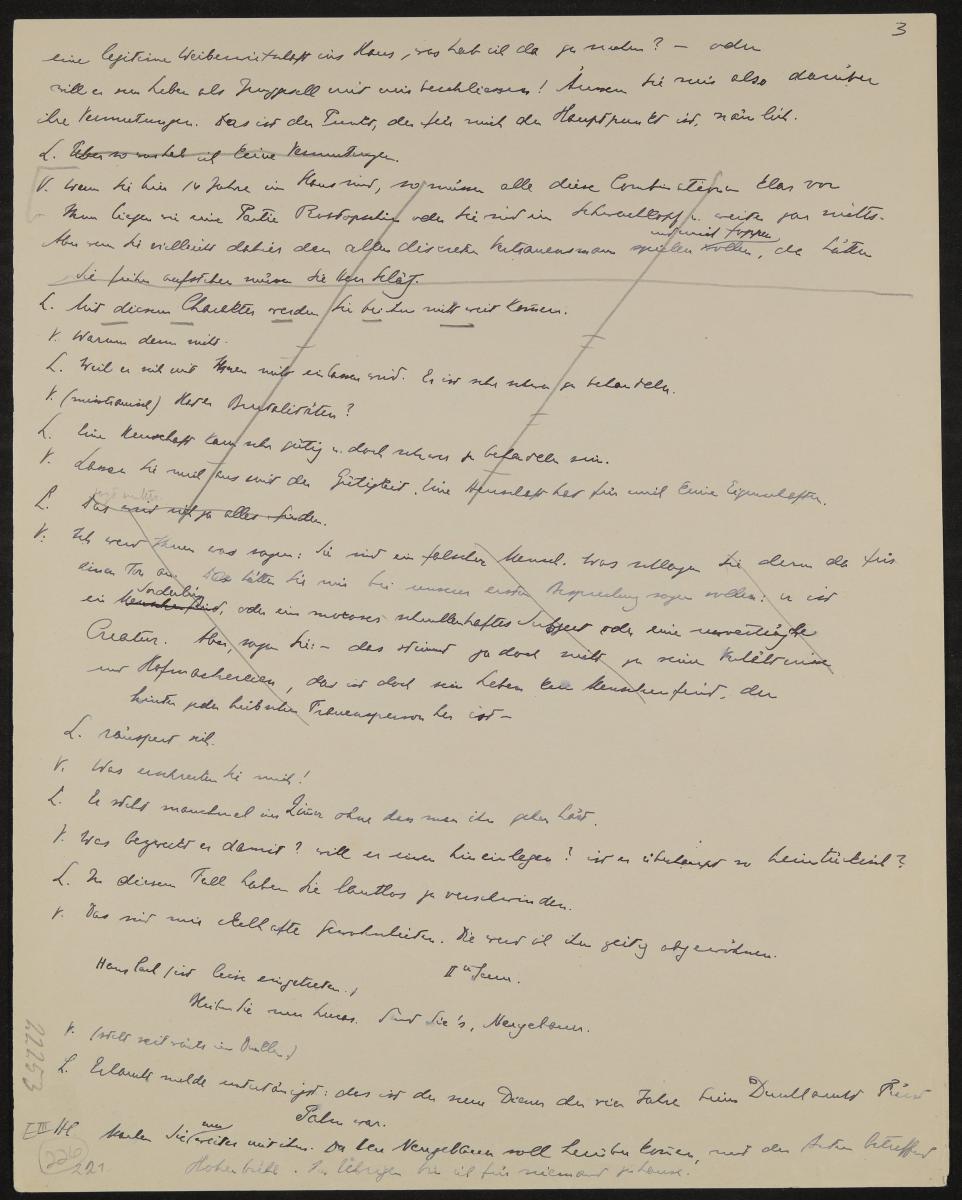 3
eine legitime Weiberwirtschaft ins Haus, was hab ich da zu suchen? – oder
will er sein Leben als Junggesell mit uns beschliessen! Äussern Sie mir also darüber
ihre Vermutungen. Das ist der Punkt, der für mich der Hauptpunkt ist, nämlich.
L. Über so was hab ich keine Vermutungen.
V. Wenn Sie hier 14 Jahre im Haus sind, so müssen alle diese Combinationen klar vor
Ihnen liegen wie eine Partie oder Sie sind ein Schwachkopf u. weiter gar nichts.
Aber wenn Sie vielleicht dahier den alten discreten Vertrauensmann spielen wollen, da hätten
und mich foppen
Sie früher aufstehen müssen Sie Herr
L. Mit diesem Charakter werden Sie bei ihm nicht weit kommen.
V. Warum denn nicht.
L. Weil er sich mit Ihnen nicht einlassen wird. Er ist sehr schwer zu behandeln.
V. (misstrauisch) Hat er Brutalitäten?
L. Eine Herrschaft kann sehr gütig u. doch schwer zu behandeln sein.
V. Lassen Sie mich aus mit der Gütigkeit. Eine Herrschaft hat für mich keine Eigenschaften.
L. Das wird sich ja alles finden.
V. Ich werd Ihnen was sagen: Sie sind ein falscher Mensch. Was schlagen Sie denn da für
einen Ton an. Das hätten Sie mir bei unserer ersten Besprechung sagen sollen: er ist
ein Menschenfeind, oder ein moroses schrullenhaftes Subject oder eine unverträgliche
Sonderling
Creatur. Aber, sagen Sie: – das stimmt ja doch nicht zu seine Verhältnisse
und Hofmachereien, das ist doch sein Leben kein Menschenfeind, der
hinter jeder hübschen Frauensperson her ist –
L. räuspert sich.
V. Was erschrecken Sie mich!
L. Er steht manchmal im Zimmer ohne dass man ihn gehen hört.
V. Was bezweckt er damit? will er einen hineinlegen? ist er überhaupt so heimtückisch?
L. In diesem Fall haben Sie lautlos zu verschwinden.
V. Das sind mir ekelhafte Gewohnheiten. Die werd ich ihm zeitig abgewöhnen.
IIte Scene.
Hans Carl (ist leise eingetreten.)
Bleiben Sie nur Lucas. Sind Sie's, Neugebauer.
V. (steht seitwärts im Dunklen)
L. Erlaucht melde untertänigst: das ist der neue Diener der vier Jahre beim Durchlaucht Fürst
Palm war.
HC Machen Sie nur weiter mit ihm. Der Herr Neugebauer soll herüber kommen, mit den Acten betreffend
Hohenbühl. Im Übrigen bin ich für niemand zuhause.
E III
226
221.
22253